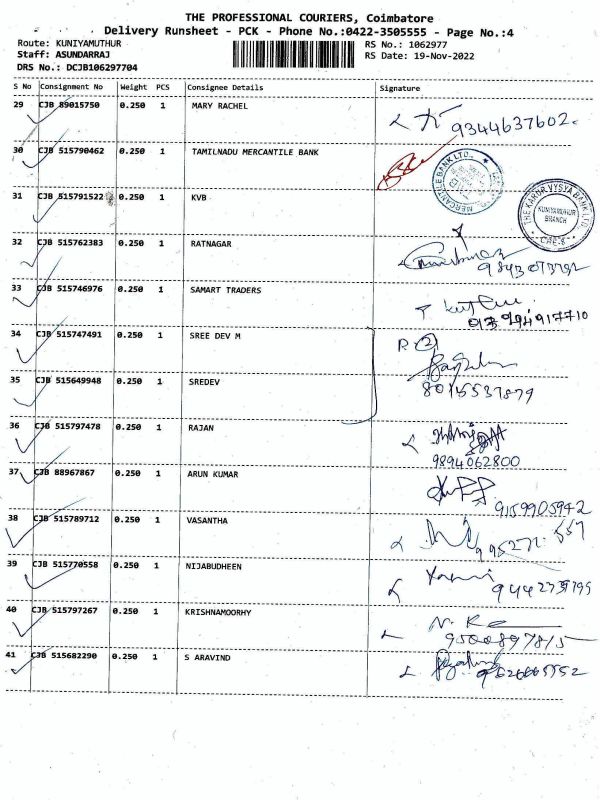 THE PROFESSIONAL COURIERS, Coimbatore
Delivery Runsheet - PCK - Phone No.:0422-3505555 - Page No.:4
Route: KUNIYAMUTHUR RS No.: 1062977
Staff: ASUNDARRAJ RS Date: 19-Nov-2022
DRS No.: DCJB106297704
S No Consignment No Weight PCS Consignee Details Signature
29 CJB 89015750 0.250 1 MARY RACHEL
9344637602
30 CJB 515790462 0.250 1 TAMILNADU MERCANTILE BANK
MERCANTILE BANK LTD.,
31 CJB 515791522 0.250 1 KVB
THE KARUR VYSYA BANK LTD.
KUNIYAMUHUR
BRANCH
CBE-8
32 CJB 515762383 0.250 1 RATNAGAR
9843073792
33 CJB 515746976 0.250 1 SAMART TRADERS
34 CJB 515747491 0.250 1 SREE DEV M
R 2
35 CJB 515649948 0.250 1 SREDEV
8015537879
36 CJB 515797478 0.250 1 RAJAN
9894062800
37 CJB 88967867 0.250 1 ARUN KUMAR
9159905942
38 CJB 515789712 0.250 1 VASANTHA
39 CJB 515770558 0.250 1 NIJABUDHEEN
40 CJB 515797267 0.250 1 KRISHNAMOORHY
9500897815
41 CJB 515682290 0.250 1 S ARAVIND